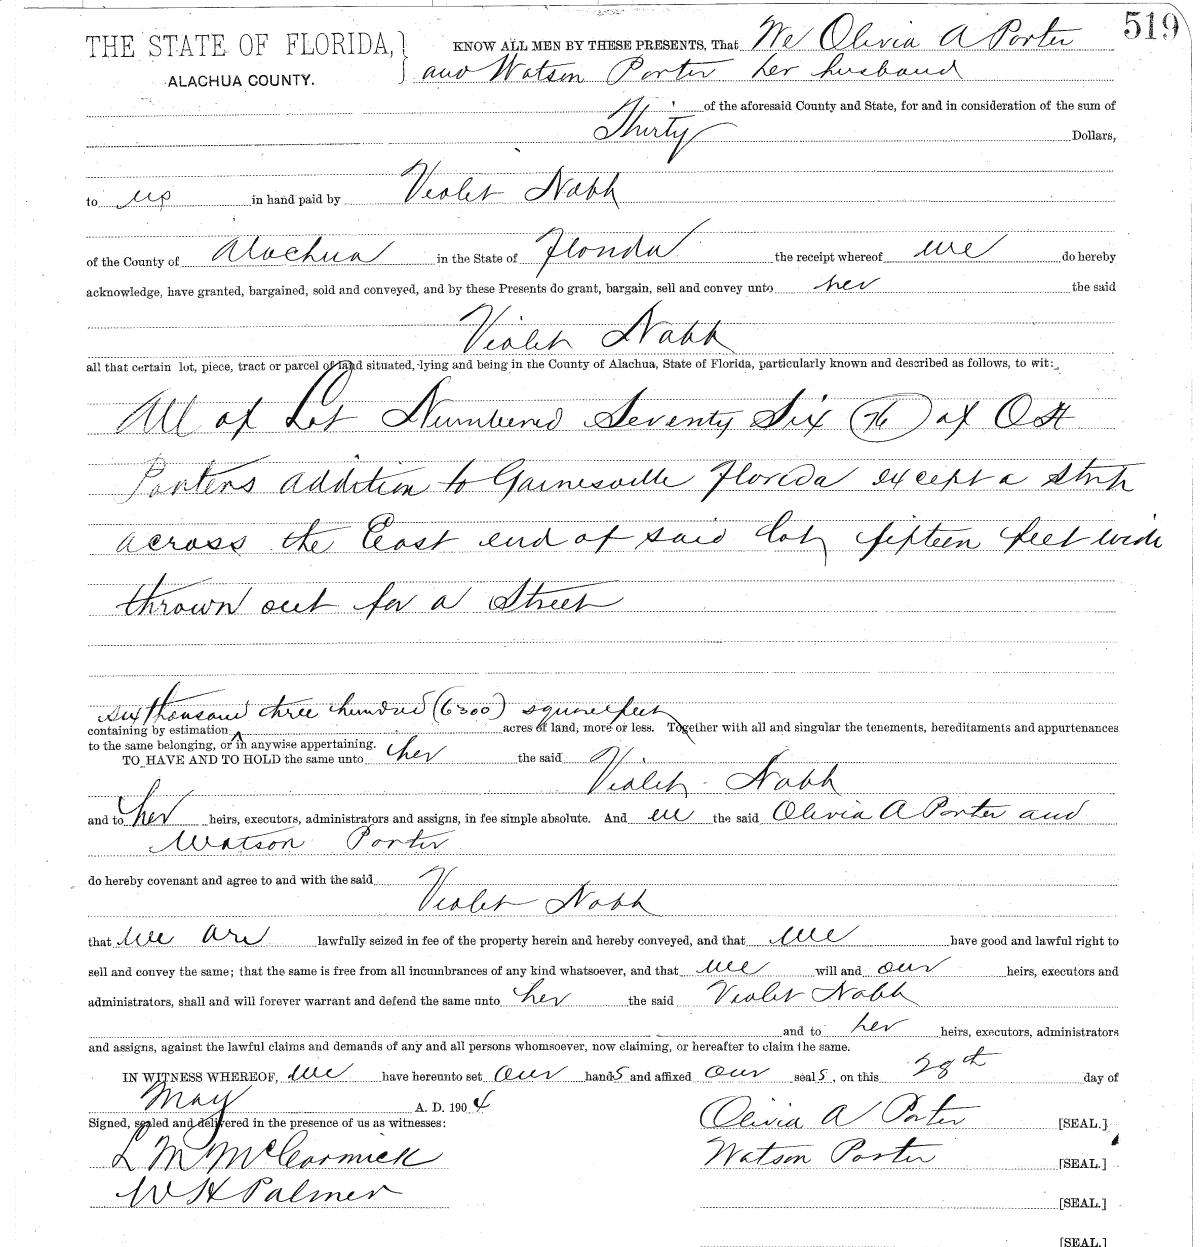 519
THE STATE OF FLORIDA, } KNOW ALL MEN BY THESE PRESENTS, That We Olivia A Porter
ALACHUA COUNTY. and Watson Porter her husband
of the aforesaid County and State, for and in consideration of the sum of
Thirty Dollars,
to us in hand paid by Violet Nabb
of the County of Alachua in the State of Florida the receipt whereof we do hereby
acknowledge, have granted, bargained, sold and conveyed, and by these Presents do grant, bargain, sell and convey unto her the said
Violet Nabb
all that certain lot, piece, tract or parcel of land situated, lying and being in the County of Alachua, State of Florida, particularly known and described as follows, to wit:
All of Lot Numbered Seventy Six (76) of
Porters addition to Gainesville Florida except a strip
across the East end of said lot, fifteen feet wide
thrown out for a Street
six thousand three hundred (6300) square feet
containing by estimation acres of land, more or less. Together with all and singular the tenements, hereditaments and appurtenances
to the same belonging, or in anywise appertaining.
TO HAVE AND TO HOLD the same unto her the said
Violet Nabb
and to her heirs, executors, administrators and assigns, in fee simple absolute. And we the said Olivia A Porter and
Watson Porter
do hereby covenant and agree to and with the said
Violet Nabb
that we are lawfully seized in fee of the property herein and hereby conveyed, and that we have good and lawful right to
sell and convey the same; that the same is free from all incumbrances of any kind whatsoever, and that we will and our heirs, executors and
administrators, shall and will forever warrant and defend the same unto her the said Violet Nabb
and to her heirs, executors, administrators
and assigns, against the lawful claims and demands of any and all persons whomsoever, now claiming, or hereafter to claim the same.
IN WITNESS WHEREOF, we have hereunto set our hands and affixed our seals, on this 28th day of
May A. D. 1904
Signed, sealed and delivered in the presence of us as witnesses: Olivia A Porter [SEAL.]
L M McCormick Watson Porter [SEAL.]
W H Palmer [SEAL.]
[SEAL.]